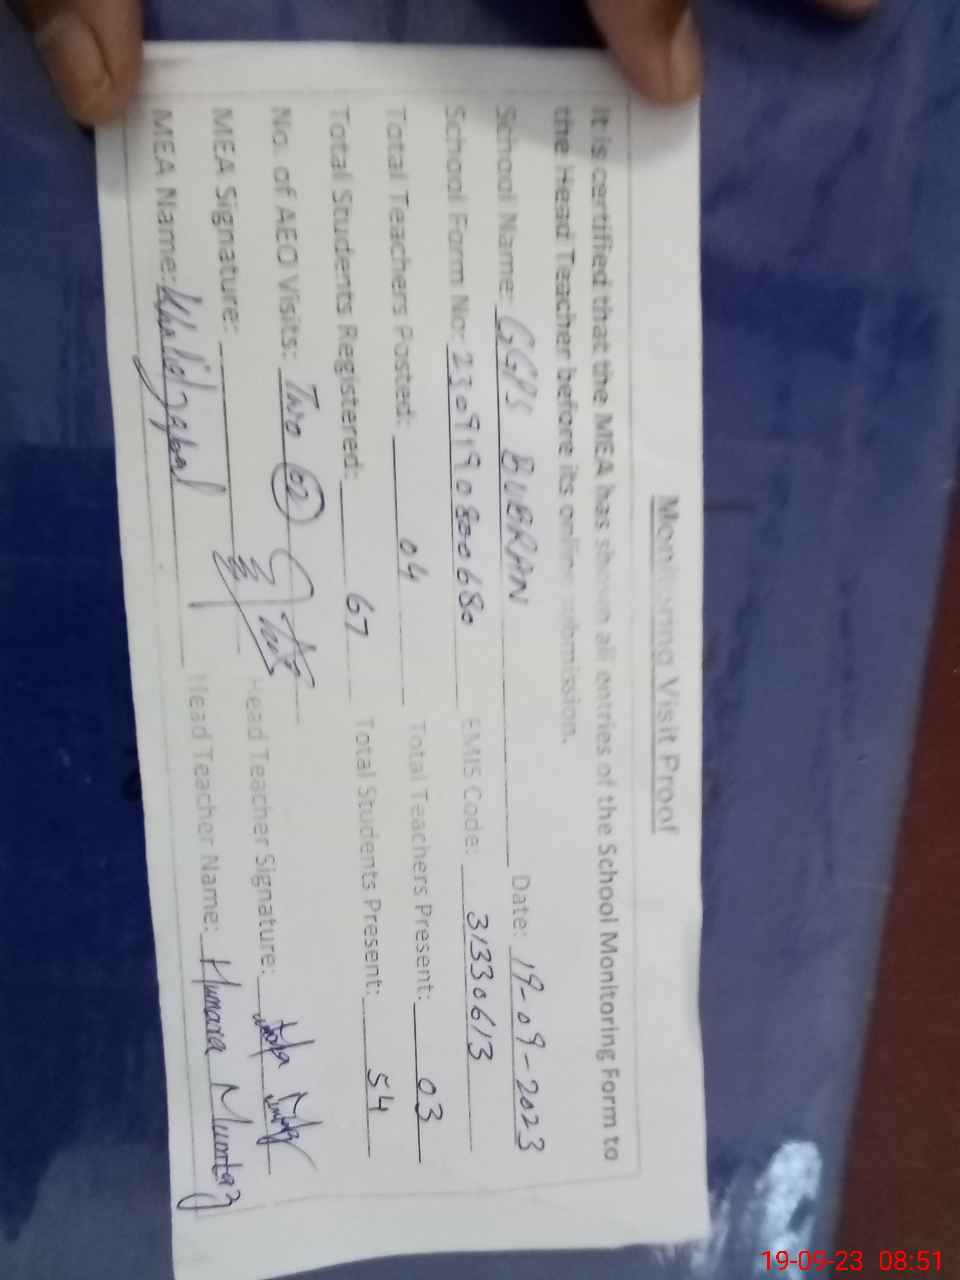 Monitoring Visit Proof
It is certified that the MEA has shown all entries of the School Monitoring Form to
the Head Teacher before its online submission.
School Name: GGPS BUBRAN Date: 19-09-2023
School Form No: 230919080068 EMIS Code: 31330613
Total Teachers Posted: 04 Total Teachers Present: 03
Total Students Registered: 67 Total Students Present: 54
No. of AEO Visits: Two 02
MEA Signature: Head Teacher Signature:
MEA Name: Khalid Iqbal Head Teacher Name: Humaira Mumtaz
19-09-23 08:51